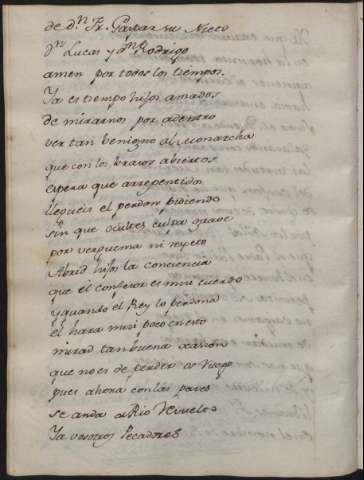 de dⁿ Fr. Gaspar su Nieto
dⁿ Lucas y dⁿ Rodrigo
amen por todos los tiempos.
Ya es tiempo hijos amados
de mirarnos por adentro
ver tan benigno al Monarcha
que con los brazos abiertos
espera que arrepentidos
llegueis el perdon pidiendo
sin que oculteis culpa grave
por verguenza ni respeto
Abrid hijos la conciencia
que el confesor es mui cuerdo
y quando el Rey lo perdona
el hara mui poco en esto
mirad tan buena ocasion
que no es de perder os ruego
pues ahora con las paces
se anda a Rio
Ya vosotros Pecadores